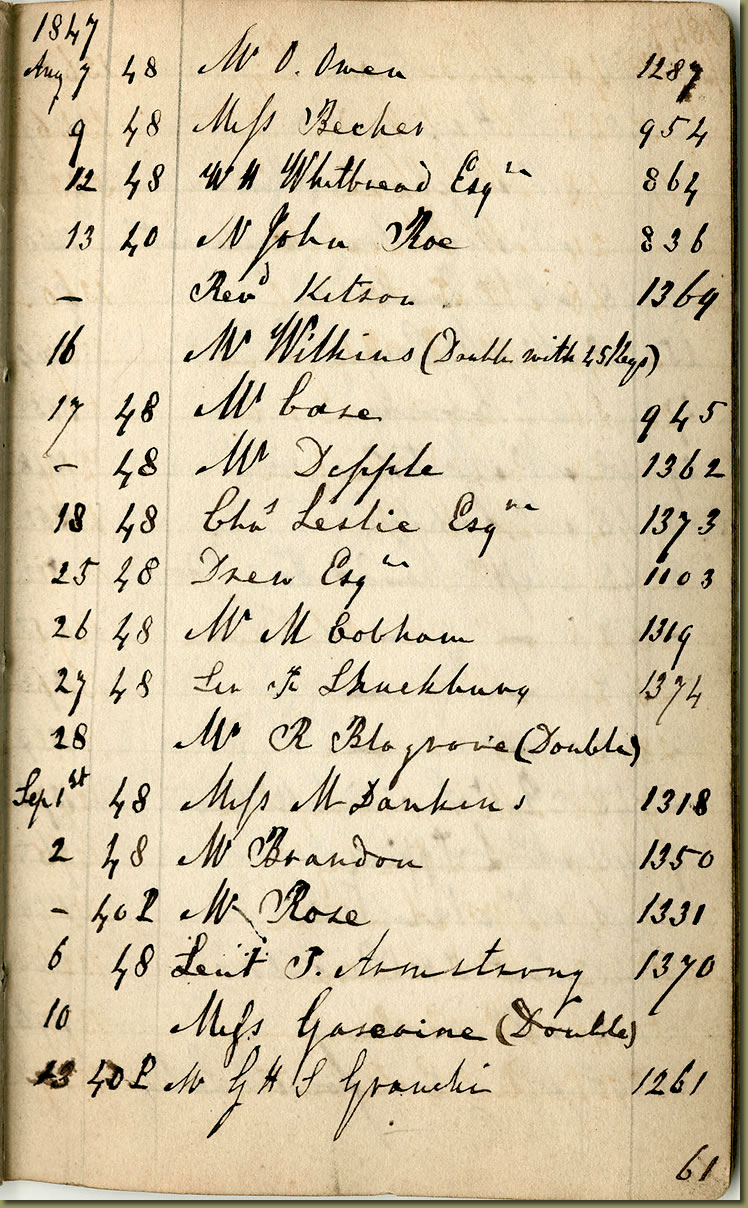 1847
Aug 7 48 Mr O. Owen 1287
9 48 Miss Becher 954
12 48 W H Whitbread Esqre 864
13 40 Mr John Roe 836
– Revd Kitson 1369
16 Mr Wilkins (Double with 45 Keys)
17 48 Mr Case 945
– 48 Mr Depple 1362
18 48 Chas Leslie Esqre 1373
25 48 Drew Esqre 1103
26 48 Mr M Cobham 1319
27 48 Shuckburg 1374
28 Mr R Blagrove (Double)
Sep 1st 48 Miss M Dawkins 1318
2 48 Mr Brandon 1350
– 40 P Mr Rose 1331
6 48 Leiut J. Armstrong 1370
10 Miss Gascoine (Double)
13 40 P Mr G H S 1261
61